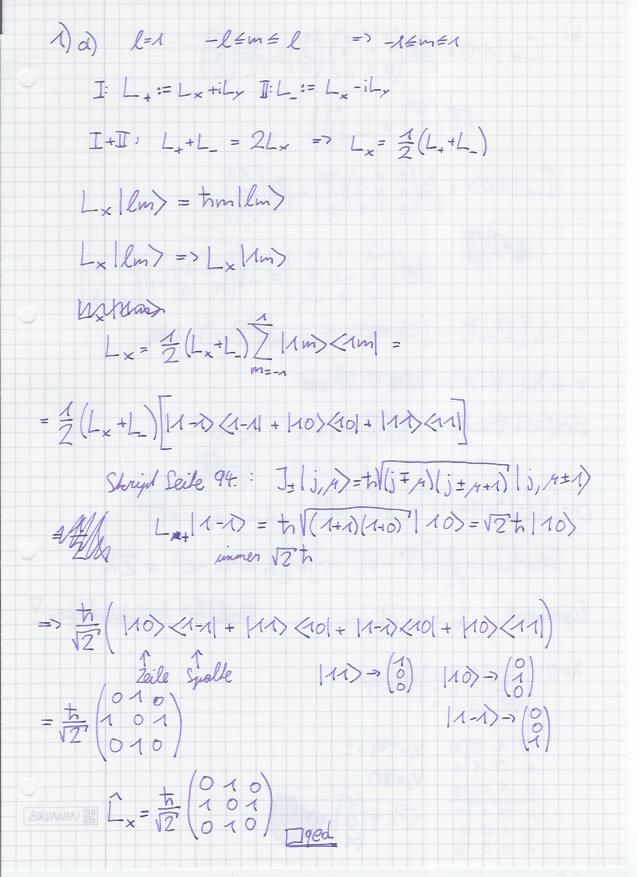 1) a) l=1 -l≤m≤l => -1≤m≤1
I: L₊ := Lₓ+iL_y II: L₋ := Lₓ-iL_y
I+II: L₊+L₋ = 2Lₓ => Lₓ = 1/2 (L₊+L₋)
Lₓ|lm> = ħm|lm>
Lₓ|lm> => Lₓ|1m>
Lₓ = 1/2 (Lₓ+L₋) ∑_{m=-1}^{1} |1m><1m| =
= 1/2 (Lₓ+L₋) [|1-1><1-1| + |10><10| + |11><11|]
Skript Seite 94: J_±|j,μ> = ħ√((j∓μ)(j±μ+1)) |j,μ±1>
L₊|1-1> = ħ√((1+1)(1+0)) |10> = √2 ħ |10>
immer √2 ħ
=> ħ/√2 (|10><1-1| + |11><10| + |1-1><10| + |10><11|)
↑ Zeile ↑ Spalte |11> → (1 0 0) |10> → (0 1 0)
|1-1> → (0 0 1)
= ħ/√2 (0 1 0
1 0 1
0 1 0)
BRUNNEN L̂ₓ = ħ/√2 (0 1 0
1 0 1
0 1 0)
□ qed